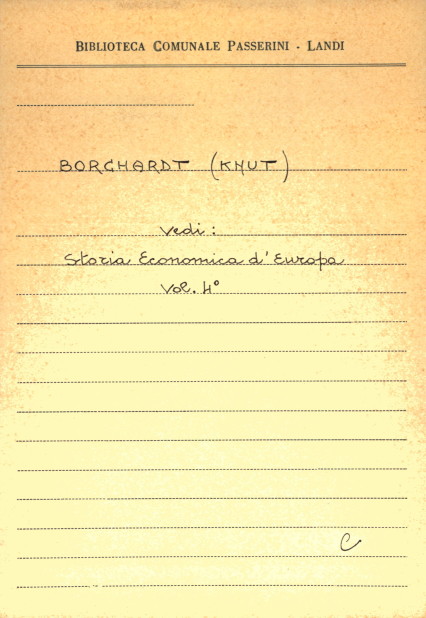 BIBLIOTECA COMUNALE PASSERINI - LANDI
BORCHARDT (KNUT)
Vedi:
Storia Economica d'Europa
Vol. 4°
C